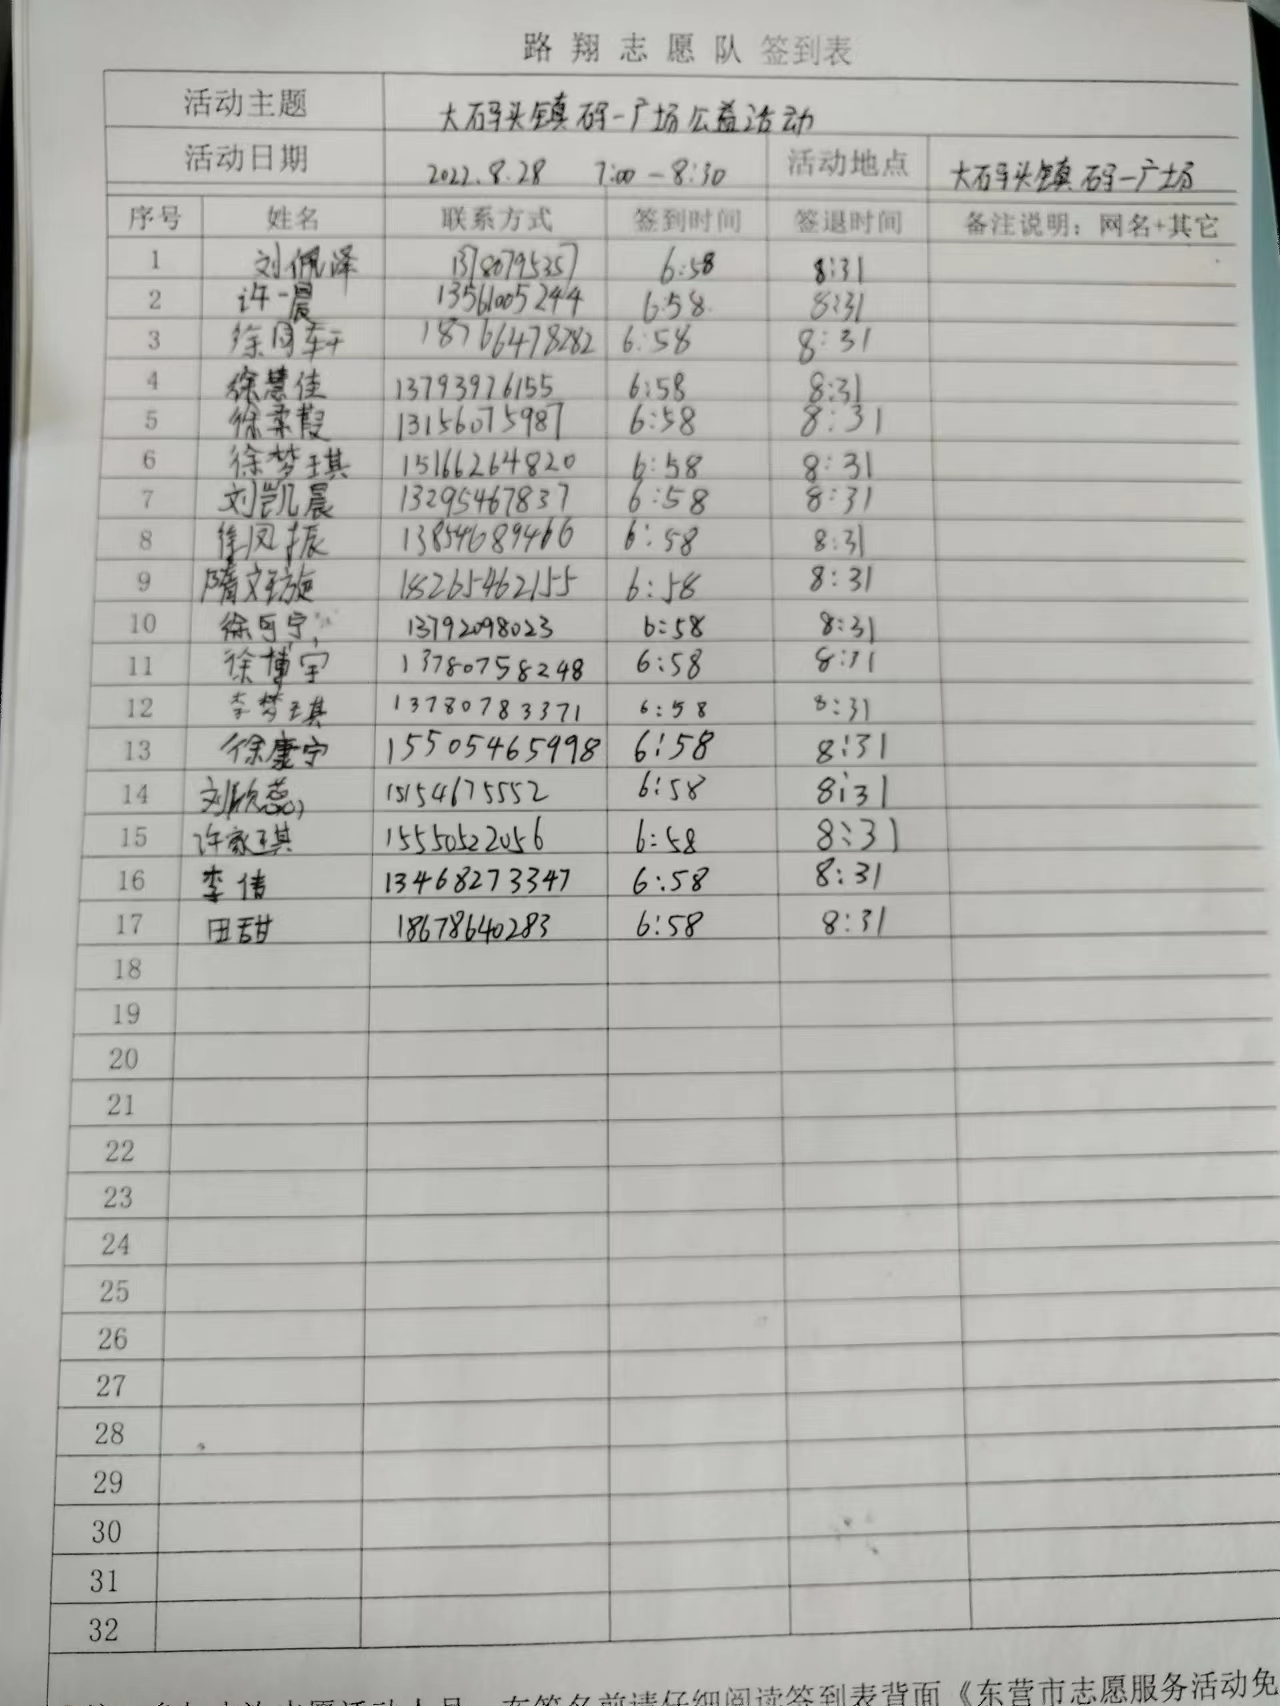 路翔志愿队 签到表
活动主题 大码头镇码一广场公益活动
活动日期 2022.8.28 7:00-8:30 活动地点 大码头镇码一广场
序号 姓名 联系方式 签到时间 签退时间 备注说明：网名+其它
1 刘佩泽 13780795357 6:58 8:31
2 许一晨 13561005244 6:58 8:31
3 徐同轩 18766478282 6:58 8:31
4 徐慧佳 13793976155 6:58 8:31
5 徐柔霞 13156075987 6:58 8:31
6 徐梦琪 15166264820 6:58 8:31
7 刘凯晨 13295467837 6:58 8:31
8 徐凤振 13854689466 6:58 8:31
9 隋文璇 18265462155 6:58 8:31
10 徐可宁 13792098023 6:58 8:31
11 徐博宇 13780758248 6:58 8:31
12 李梦琪 13780783371 6:58 8:31
13 徐康宁 15505465998 6:58 8:31
14 刘欣蕊 15154675552 6:58 8:31
15 许家琪 15550522056 6:58 8:31
16 李倩 13468273347 6:58 8:31
17 田甜 18678640283 6:58 8:31
18
19
20
21
22
23
24
25
26
27
28
29
30
31
32
在签名前请仔细阅读签到表背面《东营市志愿服务活动免